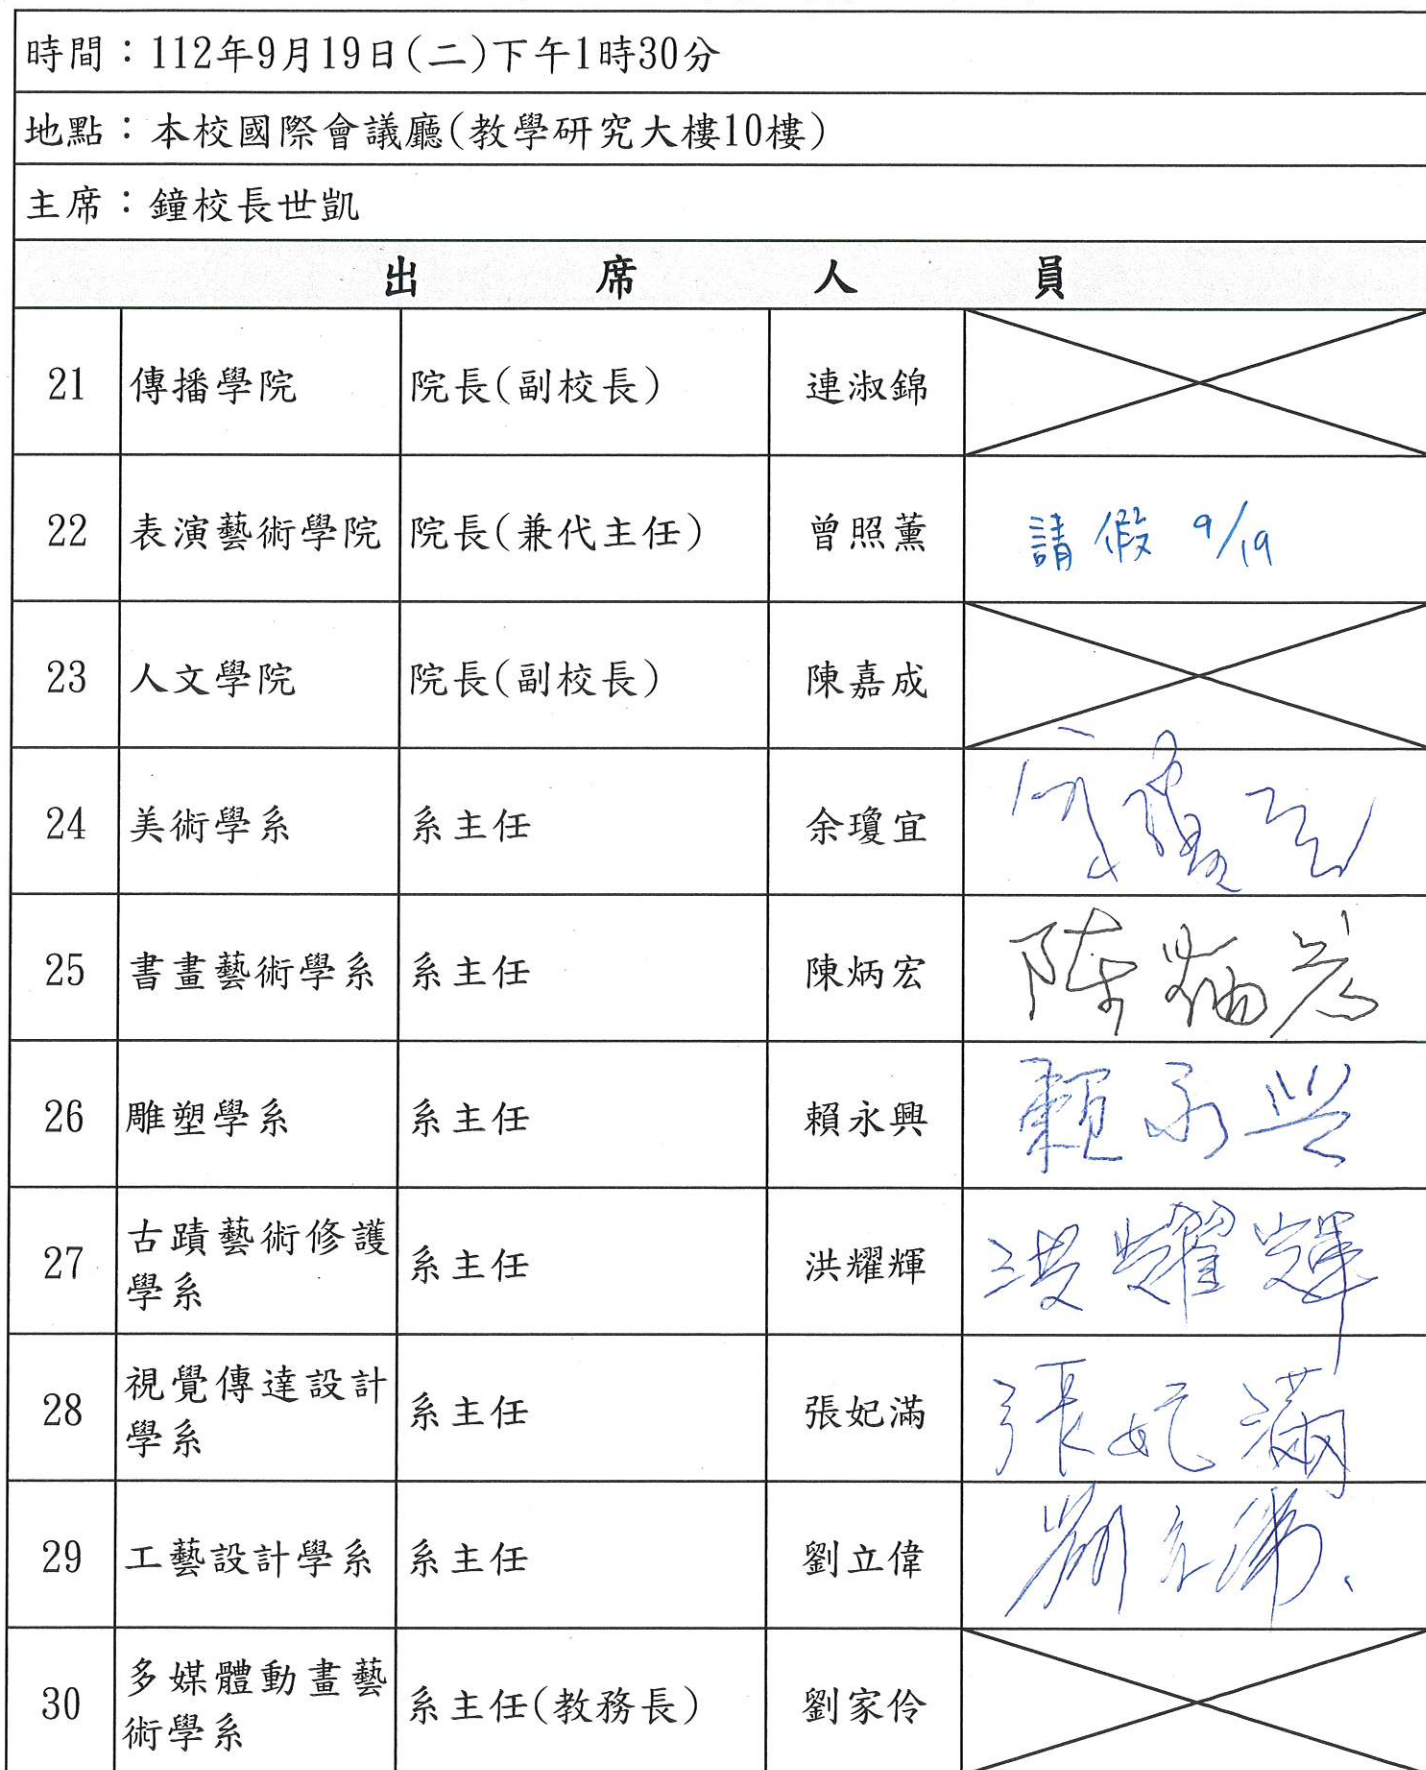 時間：112年9月19日(二)下午1時30分
地點：本校國際會議廳(教學研究大樓10樓)
主席：鐘校長世凱
出 席 人 員
21 傳播學院 院長(副校長) 連淑錦
22 表演藝術學院 院長(兼代主任) 曾照薰 請假 9/19
23 人文學院 院長(副校長) 陳嘉成
24 美術學系 系主任 余瓊宜 余瓊宜
25 書畫藝術學系 系主任 陳炳宏 陳炳宏
26 雕塑學系 系主任 賴永興 賴永興
27 古蹟藝術修護 系主任 洪耀輝 洪耀輝
學系
28 視覺傳達設計 系主任 張妃滿 張妃滿
學系
29 工藝設計學系 系主任 劉立偉 劉立偉
30 多媒體動畫藝 系主任(教務長) 劉家伶
術學系